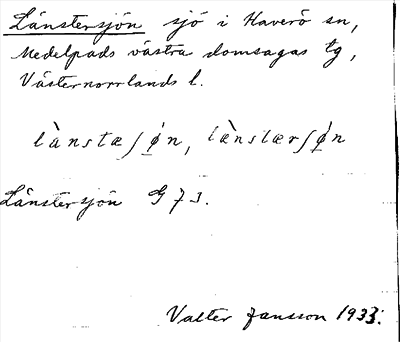 Länstersjön sjö i Haverö sn,
Medelpads västra domsagas tg,
Västernorrlands l.
lànstæʃø̀n, læ̀nstærʃø̀n
Länstersjön G 73.
Valter Jansson 1933.